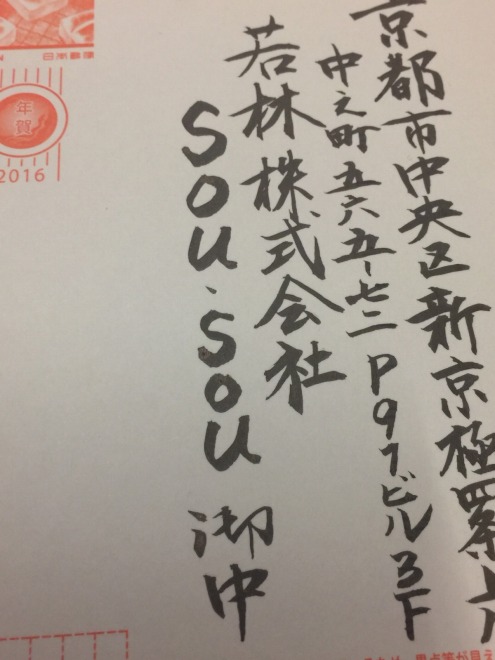 京都市中央区新京極四条上
中之町五六五-七二 P91ビル3F
若林株式会社
SOU・SOU 御中
日本郵便
年賀
2016